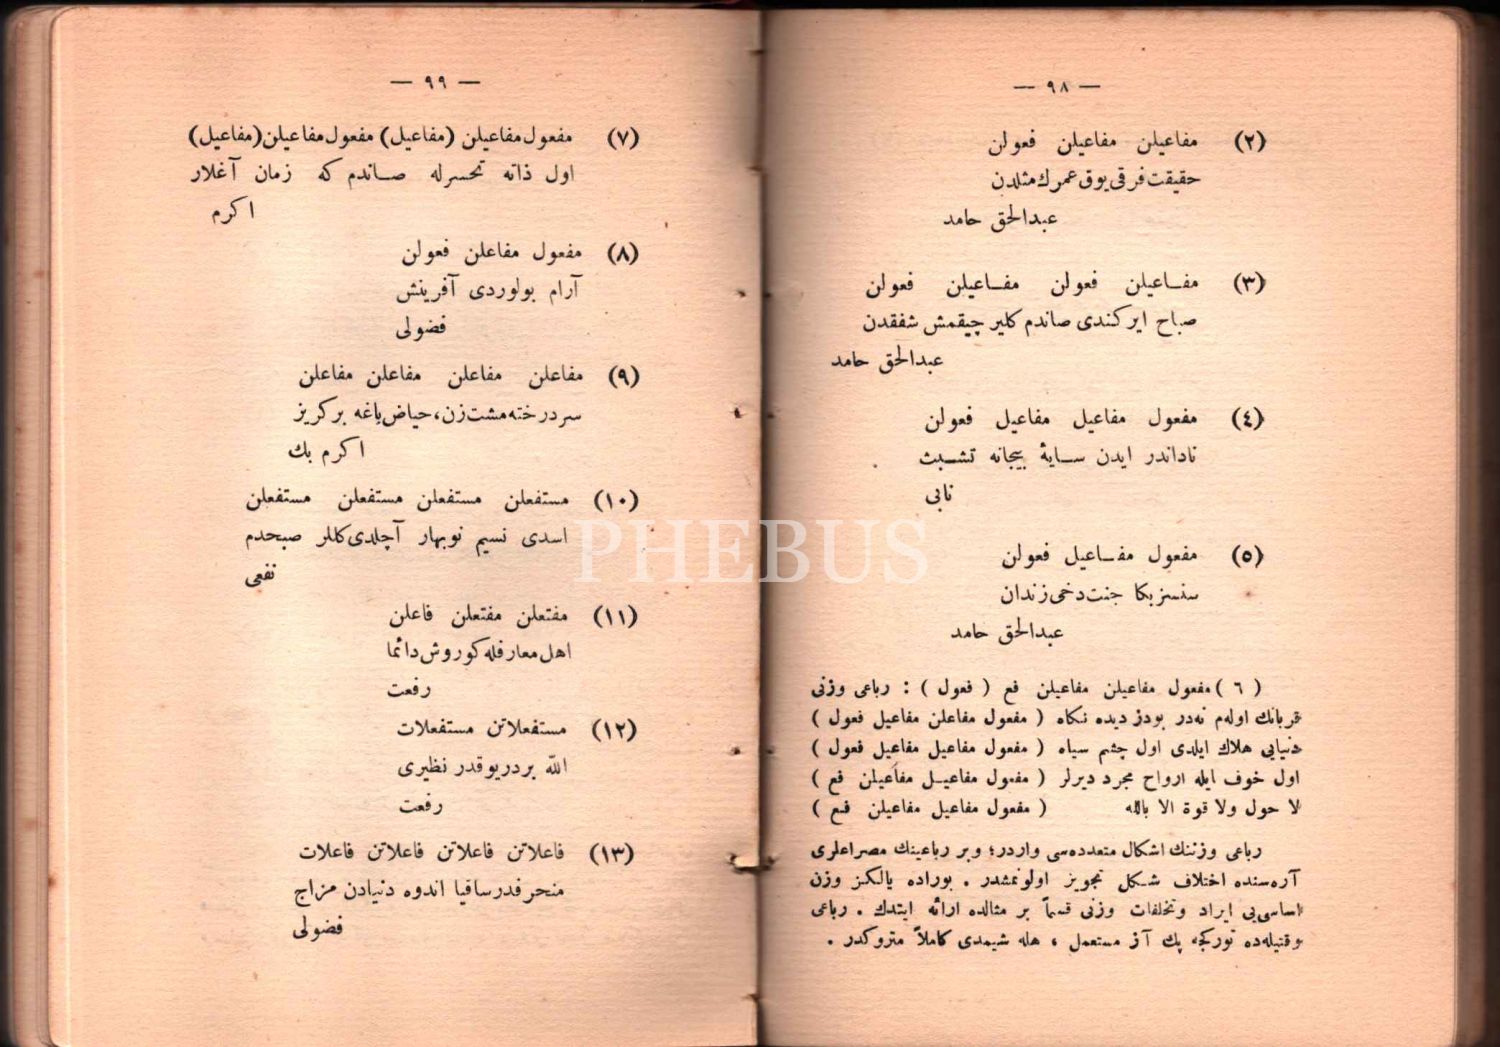 — ٩٨ —
(٢) مفاعيلن مفاعيلن فعولن
حقيقت فرقى يوق عمرك مثلدن
عبدالحق حامد
(٣) مفـاعيلن فعولن مفـاعيلن فعولن
صباح ايركندى صاندم كلير چيقمش شفقدن
عبدالحق حامد
(٤) مفعول مفاعيل مفاعيل فعولن
ناداندر ايدن سـايۀ بيجانه تشـبث
نابى
(٥) مفعول مفـاعيل فعولن
سنسز بكا جنت دخى زندان
عبدالحق حامد
(٦) مفعول مفاعيلن مفاعيلن فع ( فعول ) : رباعى وزنى
قربانك اولهم نه در بودز ديده نكاه ( مفعول مفاعلن مفاعيل فعول )
دنيايى هلاك ايلدى اول چشم سياه ( مفعول مفاعيل مفاعيل فعول )
اول خوف ايله ارواح مجرد ديرلر ( مفعول مفاعيـل مفاعيلن فع )
لا حول ولا قوة الا بالله ( مفعول مفاعيل مفاعيلن فـع )
رباعى وزننك اشكال متعدده سى واردر؛ وبر رباعينك مصراعلرى
آره سنده اختلاف شـكل تجويز اولونمشدر . بوراده يالكز وزن
اساسى يى ايراد وتخلفات وزنى قسماً بر مثالده ارائه ايتدك . رباعى
وقتيله ده توركجه پك آز مستعمل ، هله شيمدى كاملاً متروكدر .
— ٩٩ —
(٧) مفعول مفاعيلن (مفاعيل) مفعول مفاعيلن (مفاعيل)
اول ذاته تحسرله صـاندم كه زمان آغلار
اكرم
(٨) مفعول مفاعلن فعولن
آرام بولوردى آفرينش
فضولى
(٩) مفاعلن مفاعلن مفاعلن مفاعلن
سر درخته مشت زن، حياض باغه برگريز
اكرم بك
(١٠) مستفعلن مستفعلن مستفعلن مستفعلن
اسدى نسيم نوبهار آچلدى كللر صبحدم
نفعى
(١١) مفتعلن مفتعلن فاعلن
اهل معارفله كوروش دائما
رفعت
(١٢) مستفعلاتن مستفعلات
الله بردر يوقدر نظيرى
رفعت
(١٣) فاعلاتن فاعلاتن فاعلاتن فاعلات
منحرفدر ساقيا اندوه دنيادن مزاج
فضولى
PHEBUS